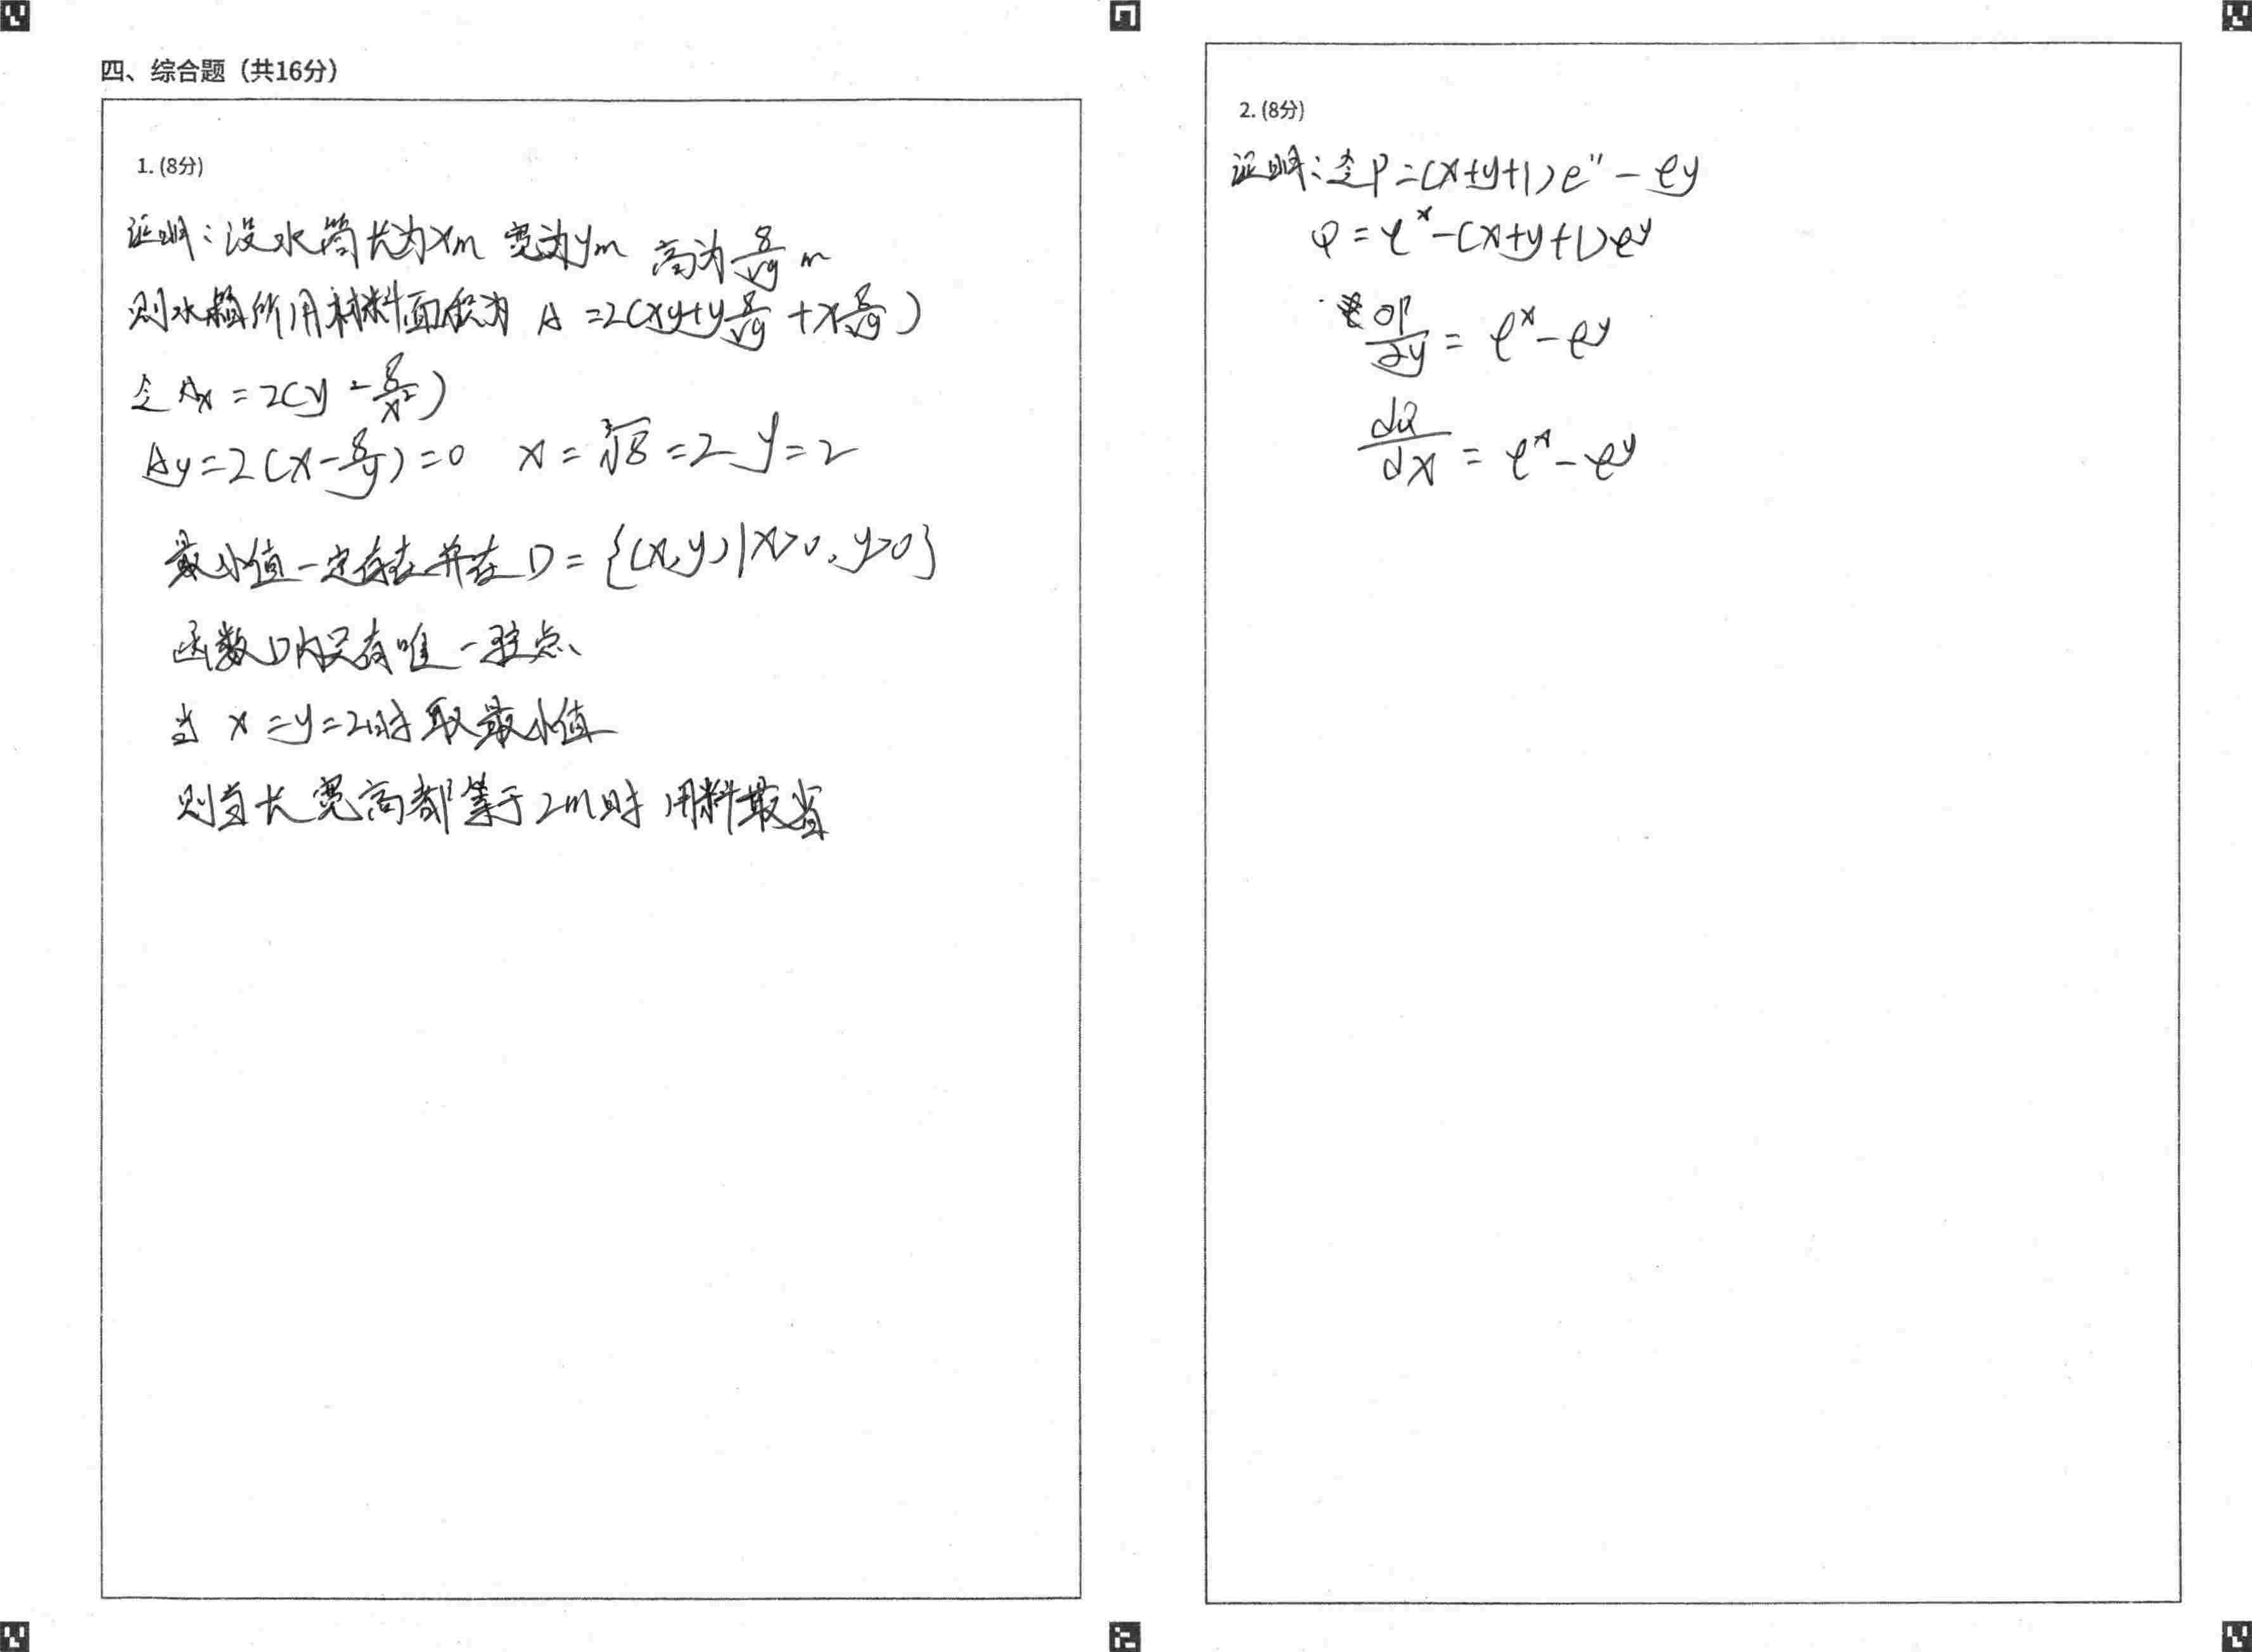 四、综合题（共16分）
1. (8分)
证明：设水箱长为xm 宽为ym 高为8/xy m
则水箱所用材料面积为 A =2(xy+y8/xy +x8/xy)
令Ax = 2(y - 8/x²)
Ay=2(x-8/y)=0 x=∛8=2 y=2
最小值一定存在并在 D={(x,y)|x>0,y>0}
函数D内只有唯一驻点
当 x=y=2时 取最小值
则当长宽高都等于2m时 用料最省
2. (8分)
证明：令P=(x+y+1)e" - ey
Q = e^x-(x+y+1)e^y
∂P/∂y = e^x - e^y
dQ/dx = e^x - e^y